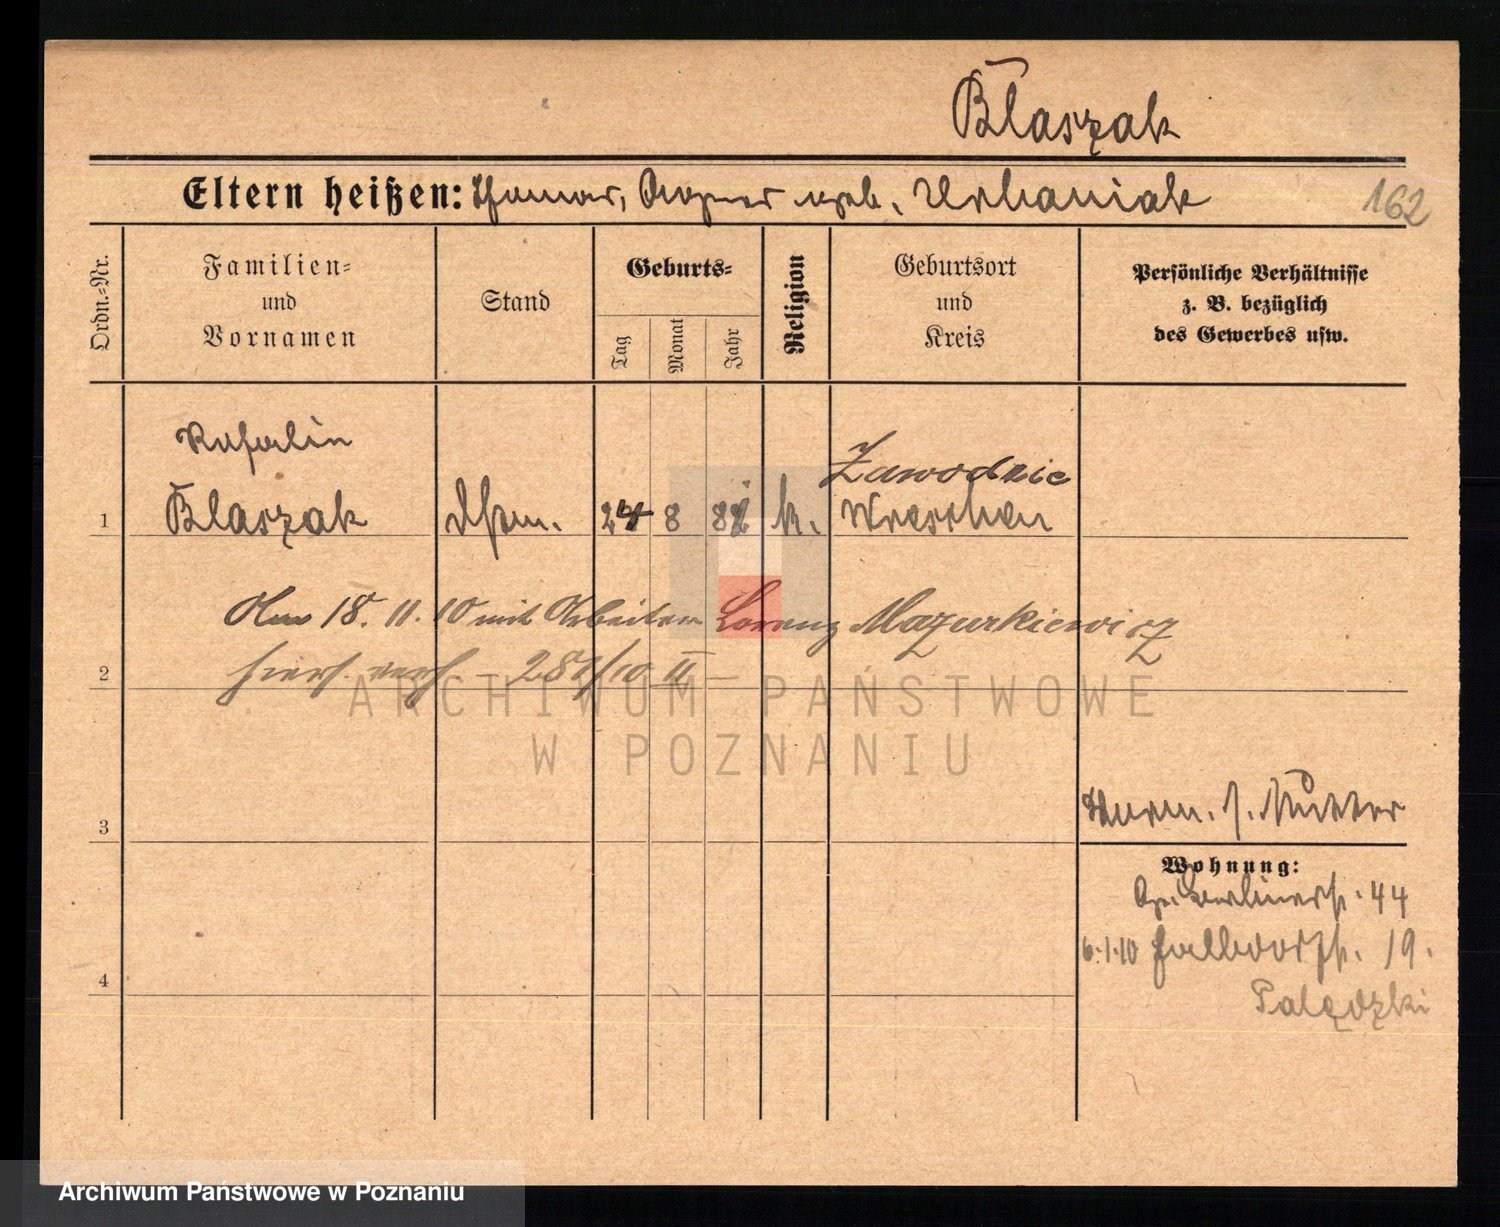 Błaszak
Eltern heißen: Thomas, Agnes geb. Urbaniak
162
Ordn.-Nr.
Familien-
und
Vornamen
Stand
Geburts-
Tag
Monat
Jahr
Religion
Geburtsort
und
Kreis
Persönliche Verhältnisse
z. B. bezüglich
des Gewerbes usw.
Zawodzie
1
Błaszak
8
k.
Wreschen
Am 18. 11. 10 mit Arbeiter Lorenz Mazurkiewicz
2
281/10 II
ARCHIWUM PAŃSTWOWE
W POZNANIU
3
Mutter
Wohnung:
44
4
6.1.10
19.
Palędzki
Archiwum Państwowe w Poznaniu